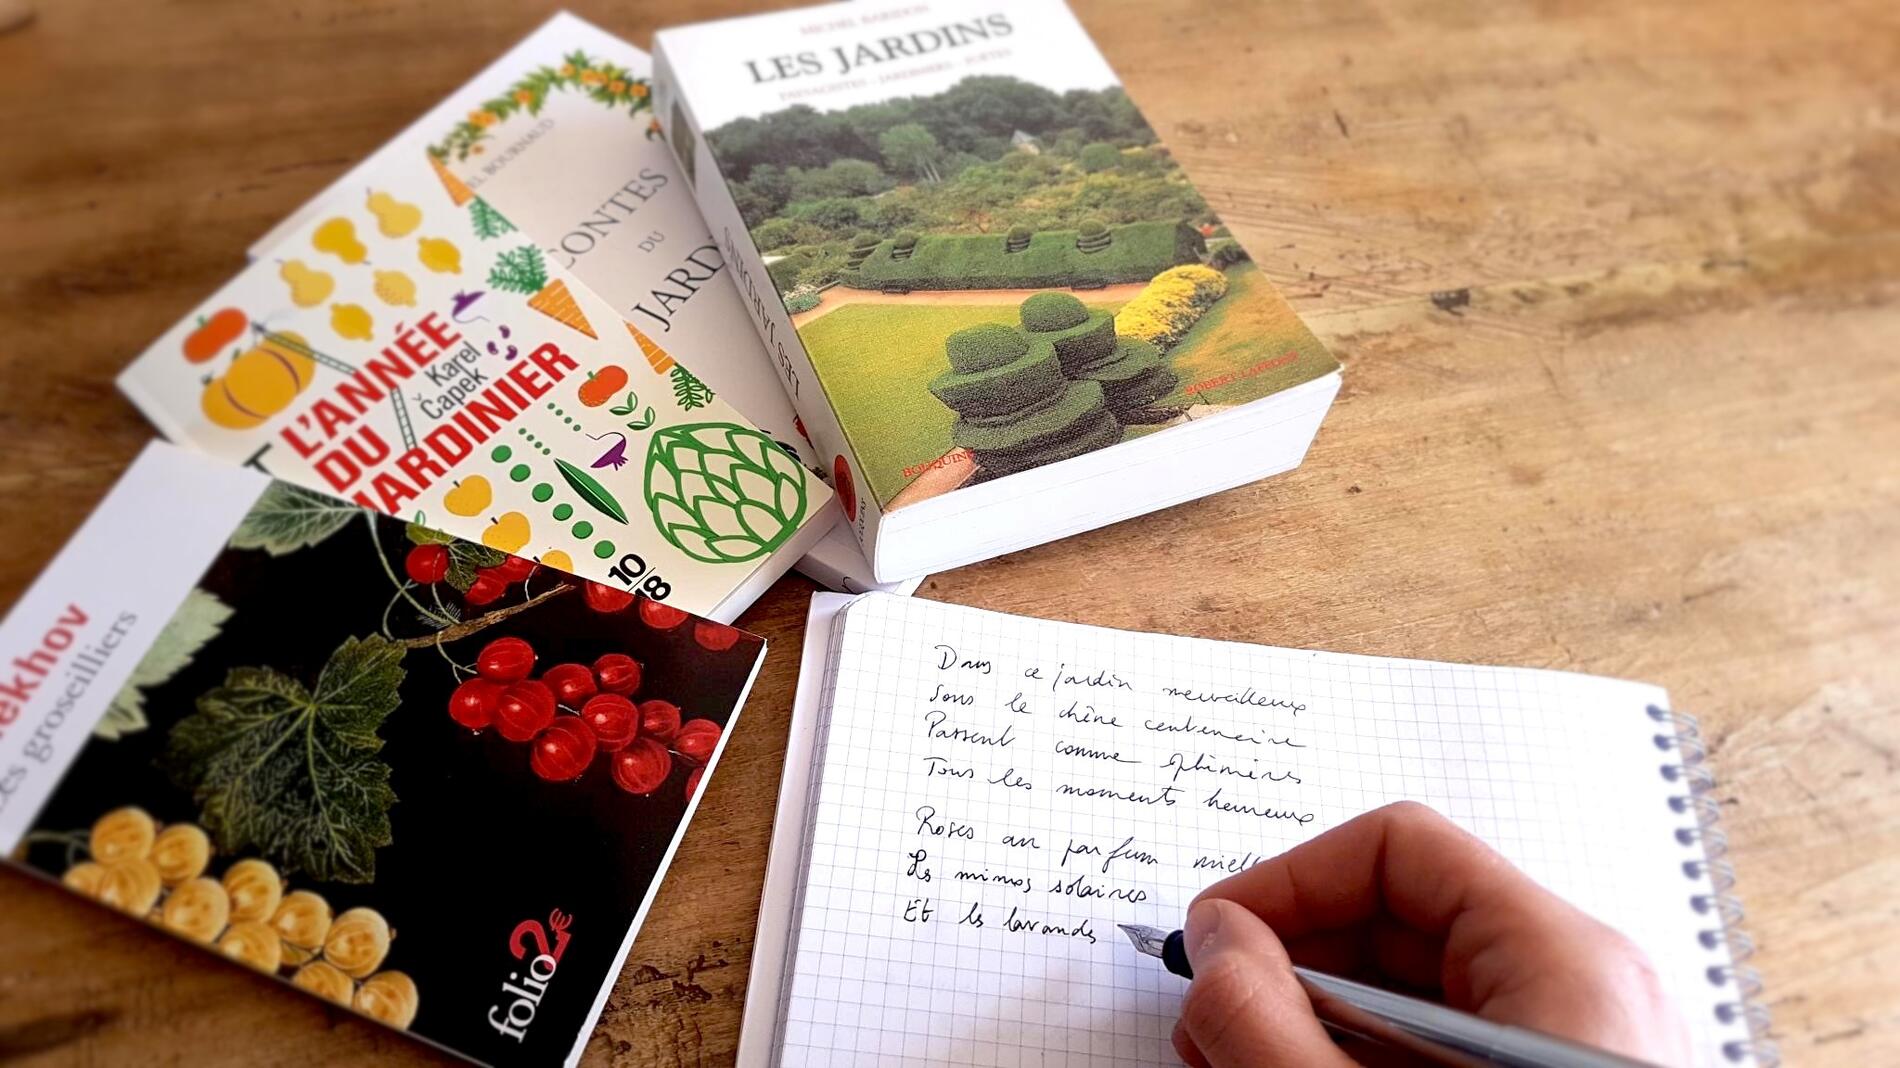 MICHEL BARIDON
LES JARDINS
PAYSAGISTES - JARDINIERS - POÈTES
ROBERT LAFFONT
BOUQUINS
LES JARDINS
EL BOURNAUD
CONTES
DU
JARD
L'ANNÉE
Karel
Čapek
DU
JARDINIER
10
18
ekhov
Les groseilliers
folio 2€
Dans ce jardin merveilleux
Sous le chêne centenaire
Passent comme éphémères
Tous les moments heureux
Roses au parfum miell
Les mimosas solaires
Et les lavandes